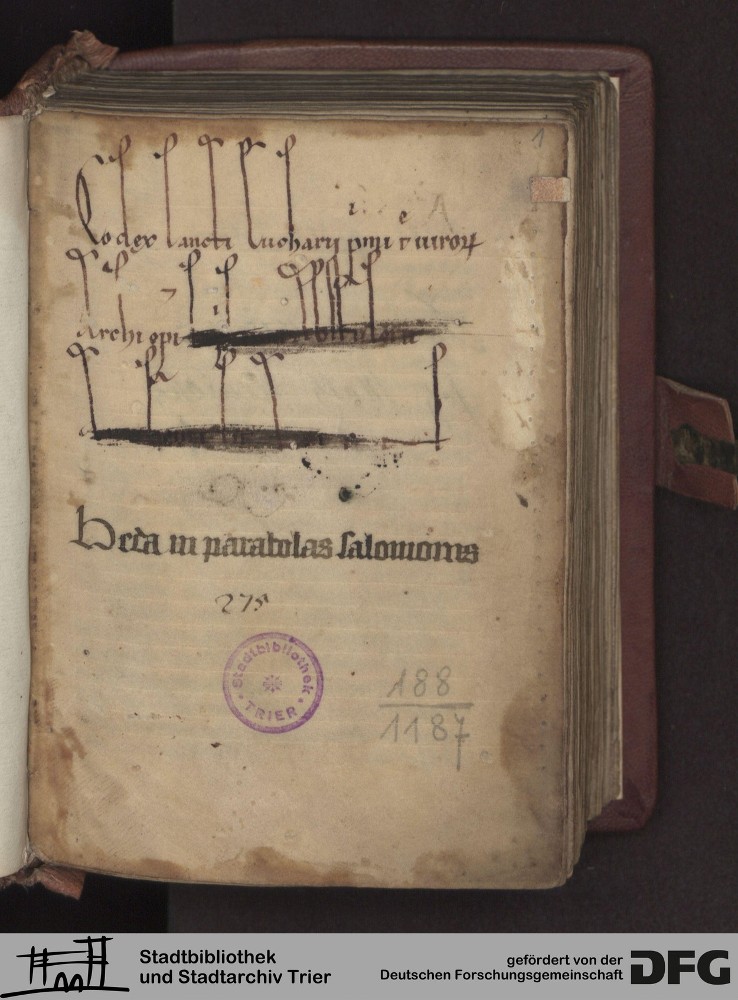 1
Codex sancti Eucharii pmi treuiror
Archiepi
Beda in parabolas salomonis
275
Stadtbibliothek
TRIER
188
1187
Stadtbibliothek
und Stadtarchiv Trier
gefördert von der
Deutschen Forschungsgemeinschaft
DFG